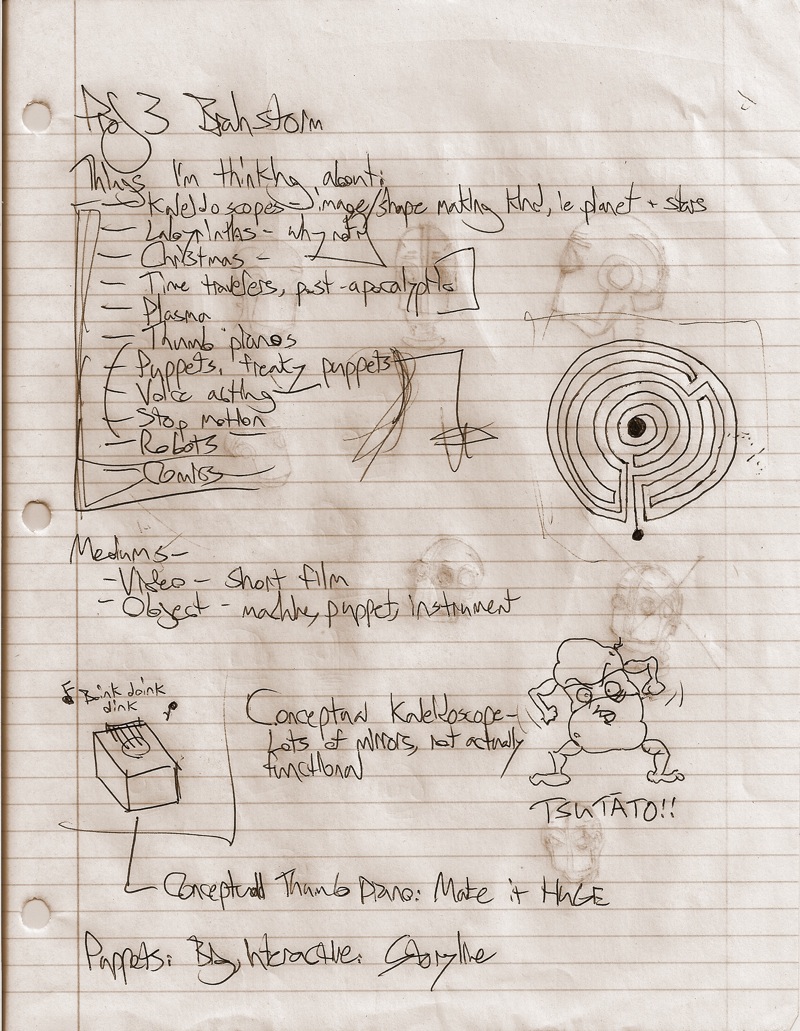 Proj 3 Brainstorm
Things I'm thinking about:
— Kaleidoscopes - image/shape making kind, ie planet + stars
— Labyrinths - why not?
— Christmas -
— Time travelers, post-apocalyptic
— Plasma
— Thumb pianos
— Puppets, freaky puppets
— Voice acting
— Stop motion
— Robots
— Comics
Mediums-
- Video - short film
- Object - machine, puppet, instrument
Boink doink
dink
Conceptual Kaleidoscope-
Lots of mirrors, not actually
functional
TSUTĀTO!!
Conceptual Thumb Piano: Make it HUGE
Puppets: Big, Interactive. Storyline